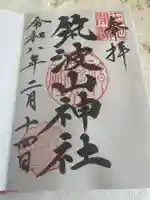 奉拝
筑波山神社
令和八年二月十四日